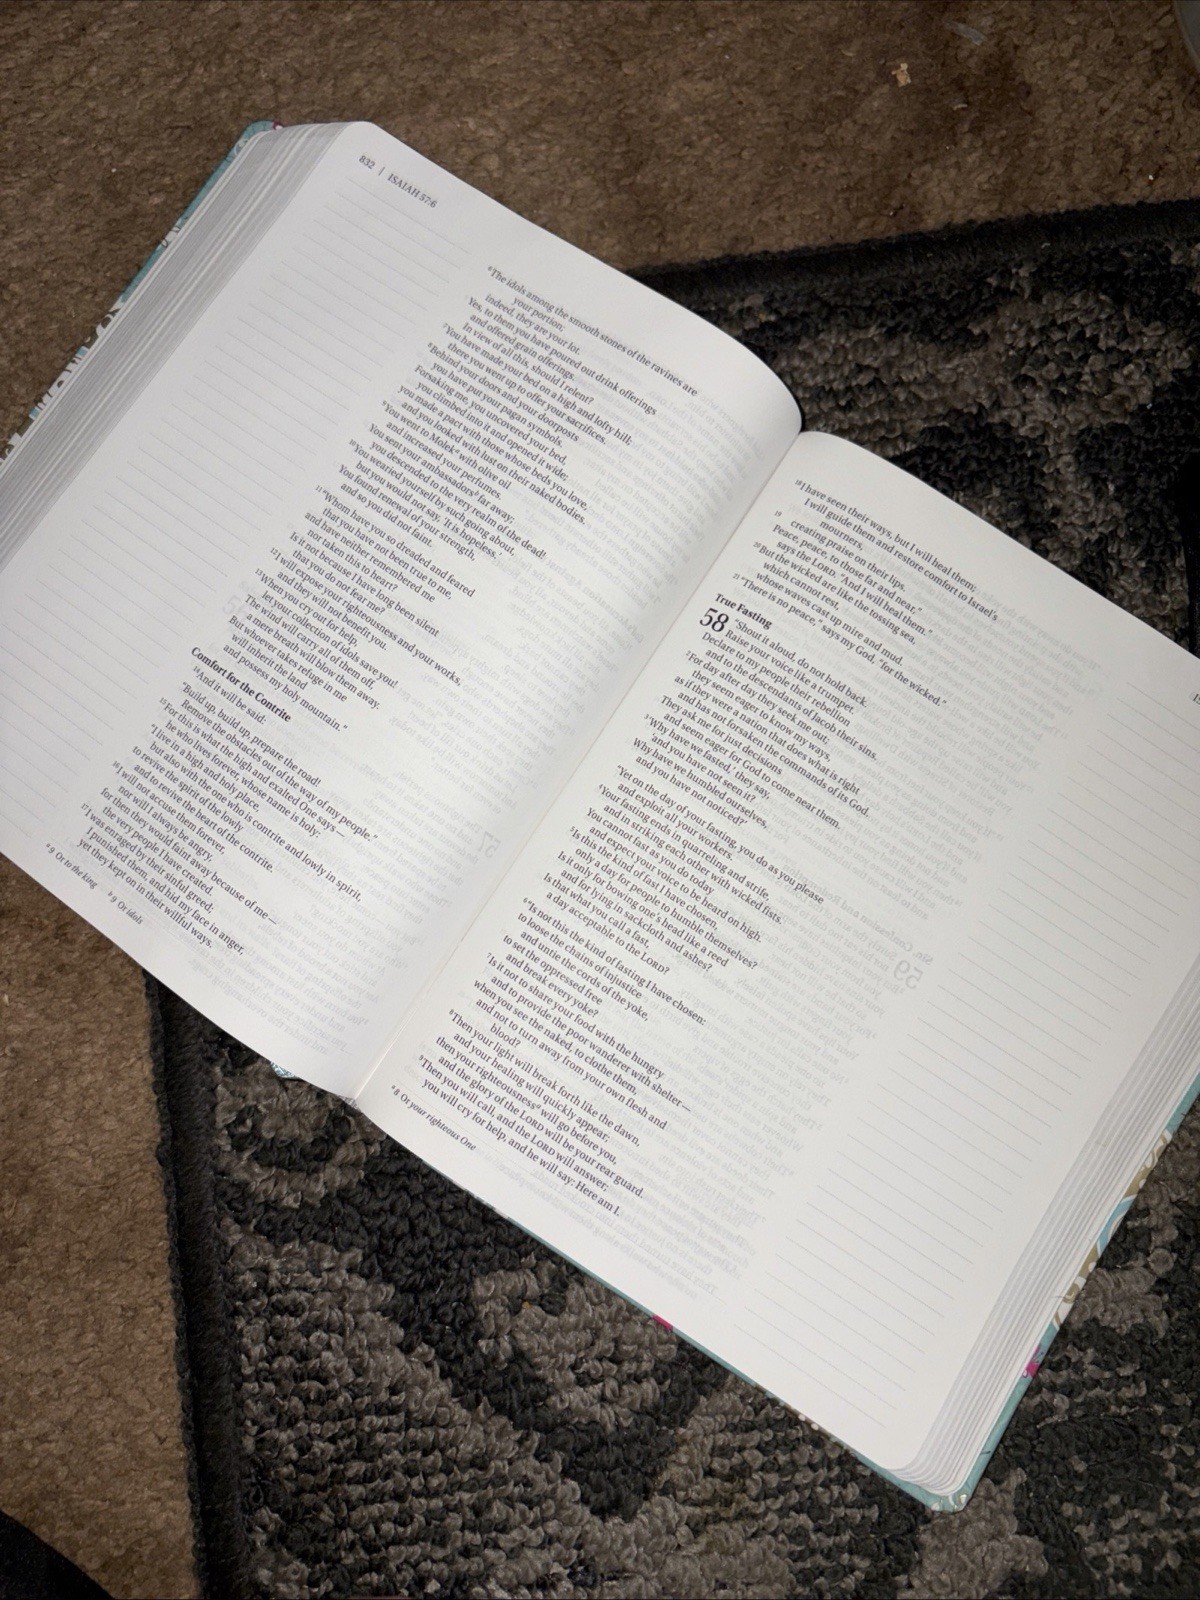 832 | ISAIAH 57:6
⁶The idols among the smooth stones of the ravines are
your portion;
indeed, they are your lot.
Yes, to them you have poured out drink offerings
and offered grain offerings.
In view of all this, should I relent?
⁷You have made your bed on a high and lofty hill;
there you went up to offer your sacrifices.
⁸Behind your doors and your doorposts
you have put your pagan symbols.
Forsaking me, you uncovered your bed,
you climbed into it and opened it wide;
you made a pact with those whose beds you love,
and you looked with lust on their naked bodies.
⁹You went to Molekᵃ with olive oil
and increased your perfumes.
You sent your ambassadorsᵇ far away;
you descended to the very realm of the dead!
¹⁰You wearied yourself by such going about,
but you would not say, ‘It is hopeless.’
You found renewal of your strength,
and so you did not faint.
¹¹“Whom have you so dreaded and feared
that you have not been true to me,
and have neither remembered me
nor taken this to heart?
Is it not because I have long been silent
that you do not fear me?
¹²I will expose your righteousness and your works,
and they will not benefit you.
¹³When you cry out for help,
let your collection of idols save you!
The wind will carry all of them off,
a mere breath will blow them away.
But whoever takes refuge in me
will inherit the land
and possess my holy mountain.”
Comfort for the Contrite
¹⁴And it will be said:
“Build up, build up, prepare the road!
Remove the obstacles out of the way of my people.”
¹⁵For this is what the high and exalted One says—
he who lives forever, whose name is holy:
“I live in a high and holy place,
but also with the one who is contrite and lowly in spirit,
to revive the spirit of the lowly
and to revive the heart of the contrite.
¹⁶I will not accuse them forever,
nor will I always be angry,
for then they would faint away because of me—
the very people I have created.
¹⁷I was enraged by their sinful greed;
I punished them, and hid my face in anger,
yet they kept on in their willful ways.
ᵃ 9 Or to the king ᵇ 9 Or idols
¹⁸I have seen their ways, but I will heal them;
I will guide them and restore comfort to Israel’s
mourners,
¹⁹ creating praise on their lips.
Peace, peace, to those far and near,”
says the LORD. “And I will heal them.”
²⁰But the wicked are like the tossing sea,
which cannot rest,
whose waves cast up mire and mud.
²¹“There is no peace,” says my God, “for the wicked.”
True Fasting
58 “Shout it aloud, do not hold back.
Raise your voice like a trumpet.
Declare to my people their rebellion
and to the descendants of Jacob their sins.
²For day after day they seek me out;
they seem eager to know my ways,
as if they were a nation that does what is right
and has not forsaken the commands of its God.
They ask me for just decisions
and seem eager for God to come near them.
³‘Why have we fasted,’ they say,
‘and you have not seen it?
Why have we humbled ourselves,
and you have not noticed?’
“Yet on the day of your fasting, you do as you please
and exploit all your workers.
⁴Your fasting ends in quarreling and strife,
and in striking each other with wicked fists.
You cannot fast as you do today
and expect your voice to be heard on high.
⁵Is this the kind of fast I have chosen,
only a day for people to humble themselves?
Is it only for bowing one’s head like a reed
and for lying in sackcloth and ashes?
Is that what you call a fast,
a day acceptable to the LORD?
⁶“Is not this the kind of fasting I have chosen:
to loose the chains of injustice
and untie the cords of the yoke,
to set the oppressed free
and break every yoke?
⁷Is it not to share your food with the hungry
and to provide the poor wanderer with shelter—
when you see the naked, to clothe them,
and not to turn away from your own flesh and
blood?
⁸Then your light will break forth like the dawn,
and your healing will quickly appear;
then your righteousnessᵃ will go before you,
and the glory of the LORD will be your rear guard.
⁹Then you will call, and the LORD will answer;
you will cry for help, and he will say: Here am I.
ᵃ 8 Or your righteous One